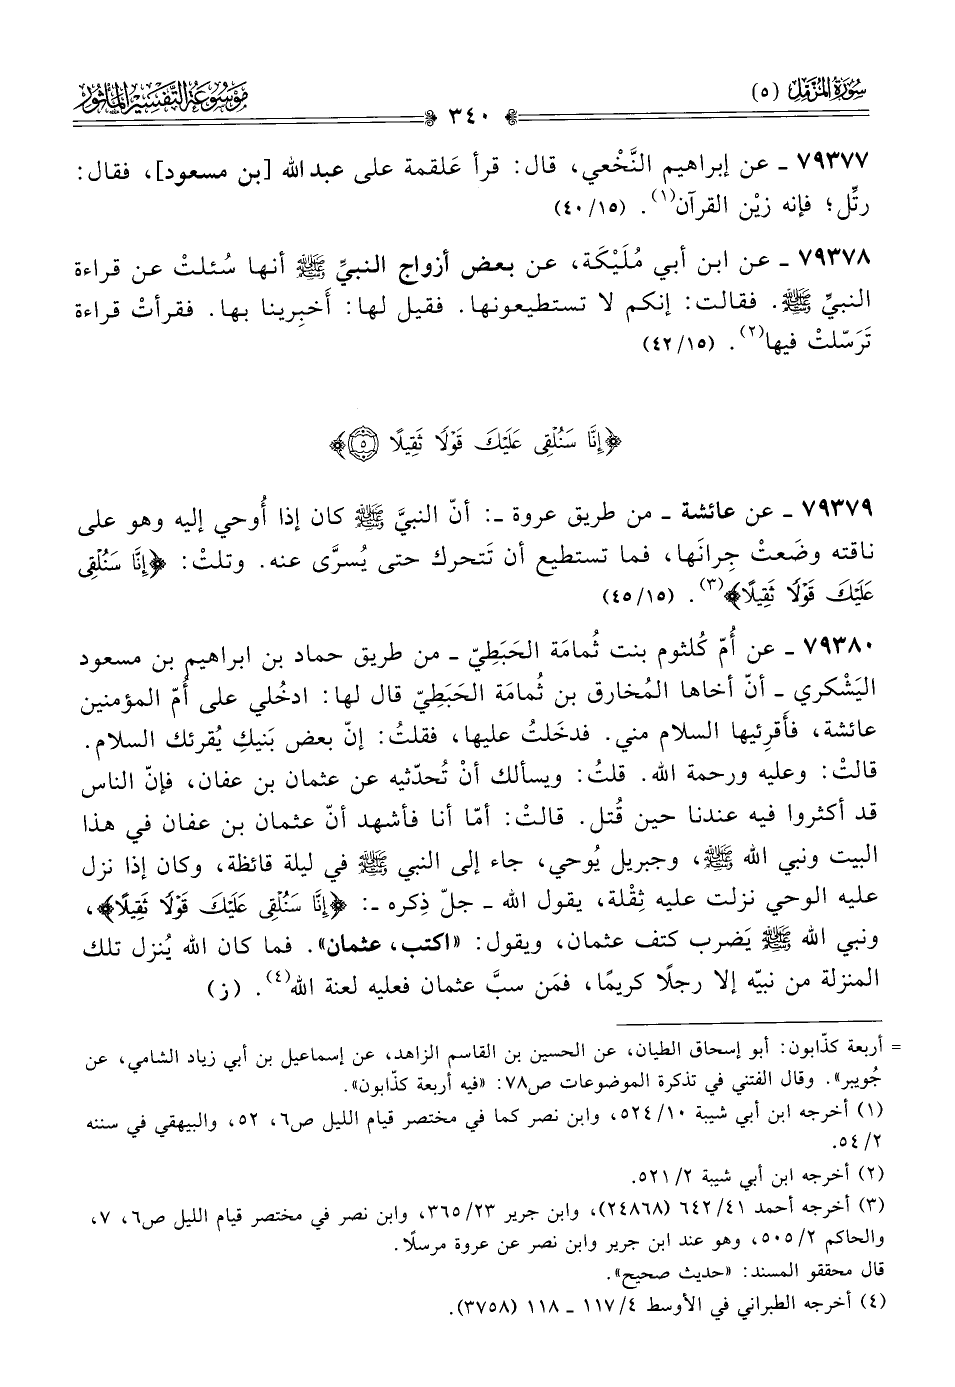 سُورَةُ المُزَّمِّل (٥)
٣٤٠
مَوْسُوعَة التَّفْسِيرِ المَأثُور
٧٩٣٧٧ ـ عن إبراهيم النَّخْعي، قال: قرأ عَلقمة على عبد الله [بن مسعود]، فقال:
رتِّل؛ فإنه زيْن القرآن(١). (١٥/ ٤٠)
٧٩٣٧٨ ـ عن ابن أبي مُلَيْكَة، عن بعض أزواج النبيِّ ﷺ أنها سُئلتْ عن قراءة
النبيِّ ﷺ. فقالت: إنكم لا تستطيعونها. فقيل لها: أَخبِرينا بها. فقرأتْ قراءة
تَرَسّلتْ فيها(٢). (١٥/ ٤٢)
﴿إِنَّا سَنُلْقِي عَلَيْكَ قَوْلًا ثَقِيلًا ٥﴾
٧٩٣٧٩ ـ عن عائشة ـ من طريق عروة ـ: أنّ النبيَّ ﷺ كان إذا أُوحي إليه وهو على
ناقته وضَعتْ جِرانَها، فما تستطيع أن تَتحرك حتى يُسرَّى عنه. وتلتْ: ﴿إِنَّا سَنُلْقِي
عَلَيْكَ قَوْلًا ثَقِيلًا﴾(٣). (١٥/ ٤٥)
٧٩٣٨٠ ـ عن أُمّ كُلثوم بنت ثُمامَة الحَبَطِيّ ـ من طريق حماد بن ابراهيم بن مسعود
اليَشْكري ـ أنّ أخاها المُخارق بن ثُمامَة الحَبَطِيّ قال لها: ادخُلي على أُمّ المؤمنين
عائشة، فأَقرِئيها السلام مني. فدخَلتُ عليها، فقلتُ: إنّ بعض بَنيكِ يُقرئك السلام.
قالتْ: وعليه ورحمة الله. قلتُ: ويسألك أنْ تُحدّثيه عن عثمان بن عفان، فإنّ الناس
قد أكثروا فيه عندنا حين قُتل. قالتْ: أمّا أنا فأشهد أنّ عثمان بن عفان في هذا
البيت ونبي الله ﷺ، وجبريل يُوحي، جاء إلى النبي ﷺ في ليلة قائظة، وكان إذا نزل
عليه الوحي نزلت عليه ثِقْلة، يقول الله ـ جلّ ذِكره ـ: ﴿إِنَّا سَنُلْقِي عَلَيْكَ قَوْلًا ثَقِيلًا﴾،
ونبي الله ﷺ يَضرب كتف عثمان، ويقول: «اكتب، عثمان». فما كان الله يُنزل تلك
المنزلة من نبيّه إلا رجلًا كريمًا، فمَن سبَّ عثمان فعليه لعنة الله(٤). (ز)
= أربعة كذّابون: أبو إسحاق الطيان، عن الحسين بن القاسم الزاهد، عن إسماعيل بن أبي زياد الشامي، عن
جُويبر». وقال الفتني في تذكرة الموضوعات ص٧٨: «فيه أربعة كذّابون».
(١) أخرجه ابن أبي شيبة ١٠/ ٥٢٤، وابن نصر كما في مختصر قيام الليل ص٦، ٥٢، والبيهقي في سننه
٢/ ٥٤.
(٢) أخرجه ابن أبي شيبة ٢/ ٥٢١.
(٣) أخرجه أحمد ٤١/ ٦٤٢ (٢٤٨٦٨)، وابن جرير ٢٣/ ٣٦٥، وابن نصر في مختصر قيام الليل ص٦، ٧،
والحاكم ٢/ ٥٠٥، وهو عند ابن جرير وابن نصر عن عروة مرسلًا.
قال محققو المسند: «حديث صحيح».
(٤) أخرجه الطبراني في الأوسط ٤/ ١١٧ ـ ١١٨ (٣٧٥٨).